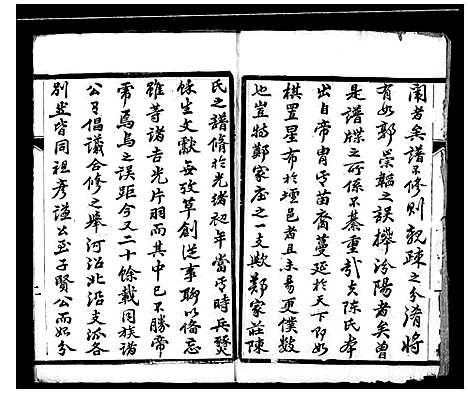 南者矣譜不修則親疎之分淆將
有如郭崇韜之誤攀汾陽者矣曾
是譜牒之所係不綦重哉夫陳氏本
出自帝冑其苗裔蔓延於天下即如
棋置星布於壇邑者且未易更僕數
也豈特鄭家庄之一支歟鄭家庄陳
氏之譜脩於光緒初年當其時兵燹
餘生文獻無攷草創從事聊以備忘
雖等諸吉光片羽而其中已不勝帝
帝焉烏之誤距今又二十餘載同族諸
公有倡議合修之舉河沿北沿支派各
別並皆同祖彥謐公至子賢公而始分